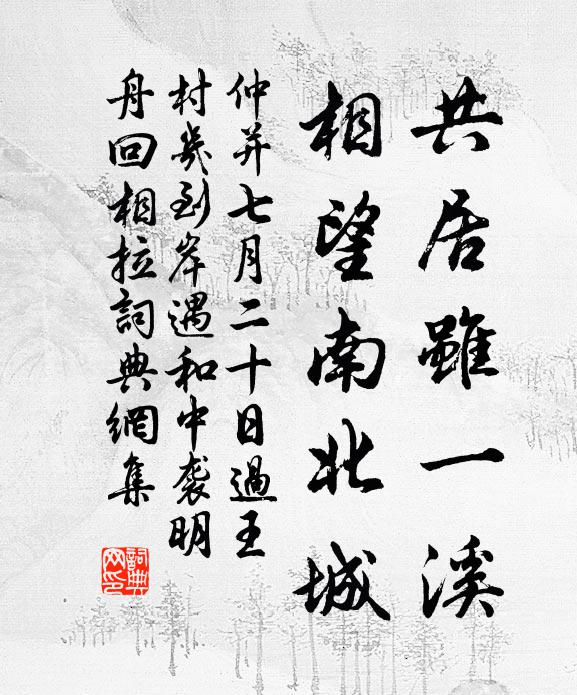 共居雖一溪
相望南北城
仲并七月二十日過王
村幾到岸遇和中袭明
舟回相拉詞典網集
詞典网印